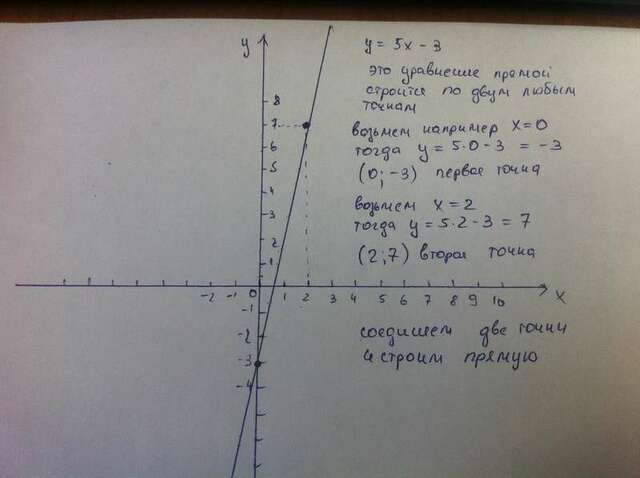 y = 5x - 3
это уравнение прямой
строится по двум любым
точкам
возьмем например x=0
тогда y = 5·0 - 3 = -3
(0; -3) первая точка
возьмем x = 2
тогда y = 5·2 - 3 = 7
(2; 7) вторая точка
соединяем две точки
и строим прямую
y
8
7
6
5
4
3
2
1
-2 -1 0 1 2 3 4 5 6 7 8 9 10 x
-1
-2
-3
-4